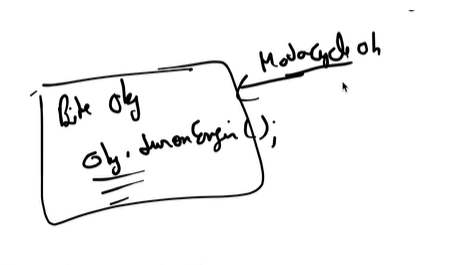 Motorcycle ob
Bike obj
obj.turnonEngin();